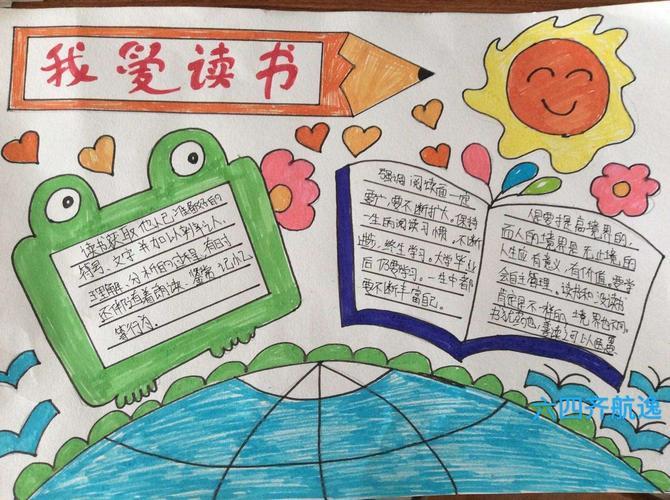 我爱读书
读书获取他人已准备好的
符号、文字并加以辨认、
理解、分析的过程,有时
还伴有着朗读、鉴赏、记忆
等行为。
强调阅读面一定
要广,要不断扩大。保持
一生的阅读习惯,不断
进步,终生学习。大学毕业
后仍要学习。一生中都
要不断丰富自己。
人是要提高境界的,
而人的境界是无止境的
人生应有意义,有价值,要学
会自主管理。读书和没读书
肯定是不一样的,境界也不同。
六四齐航逸